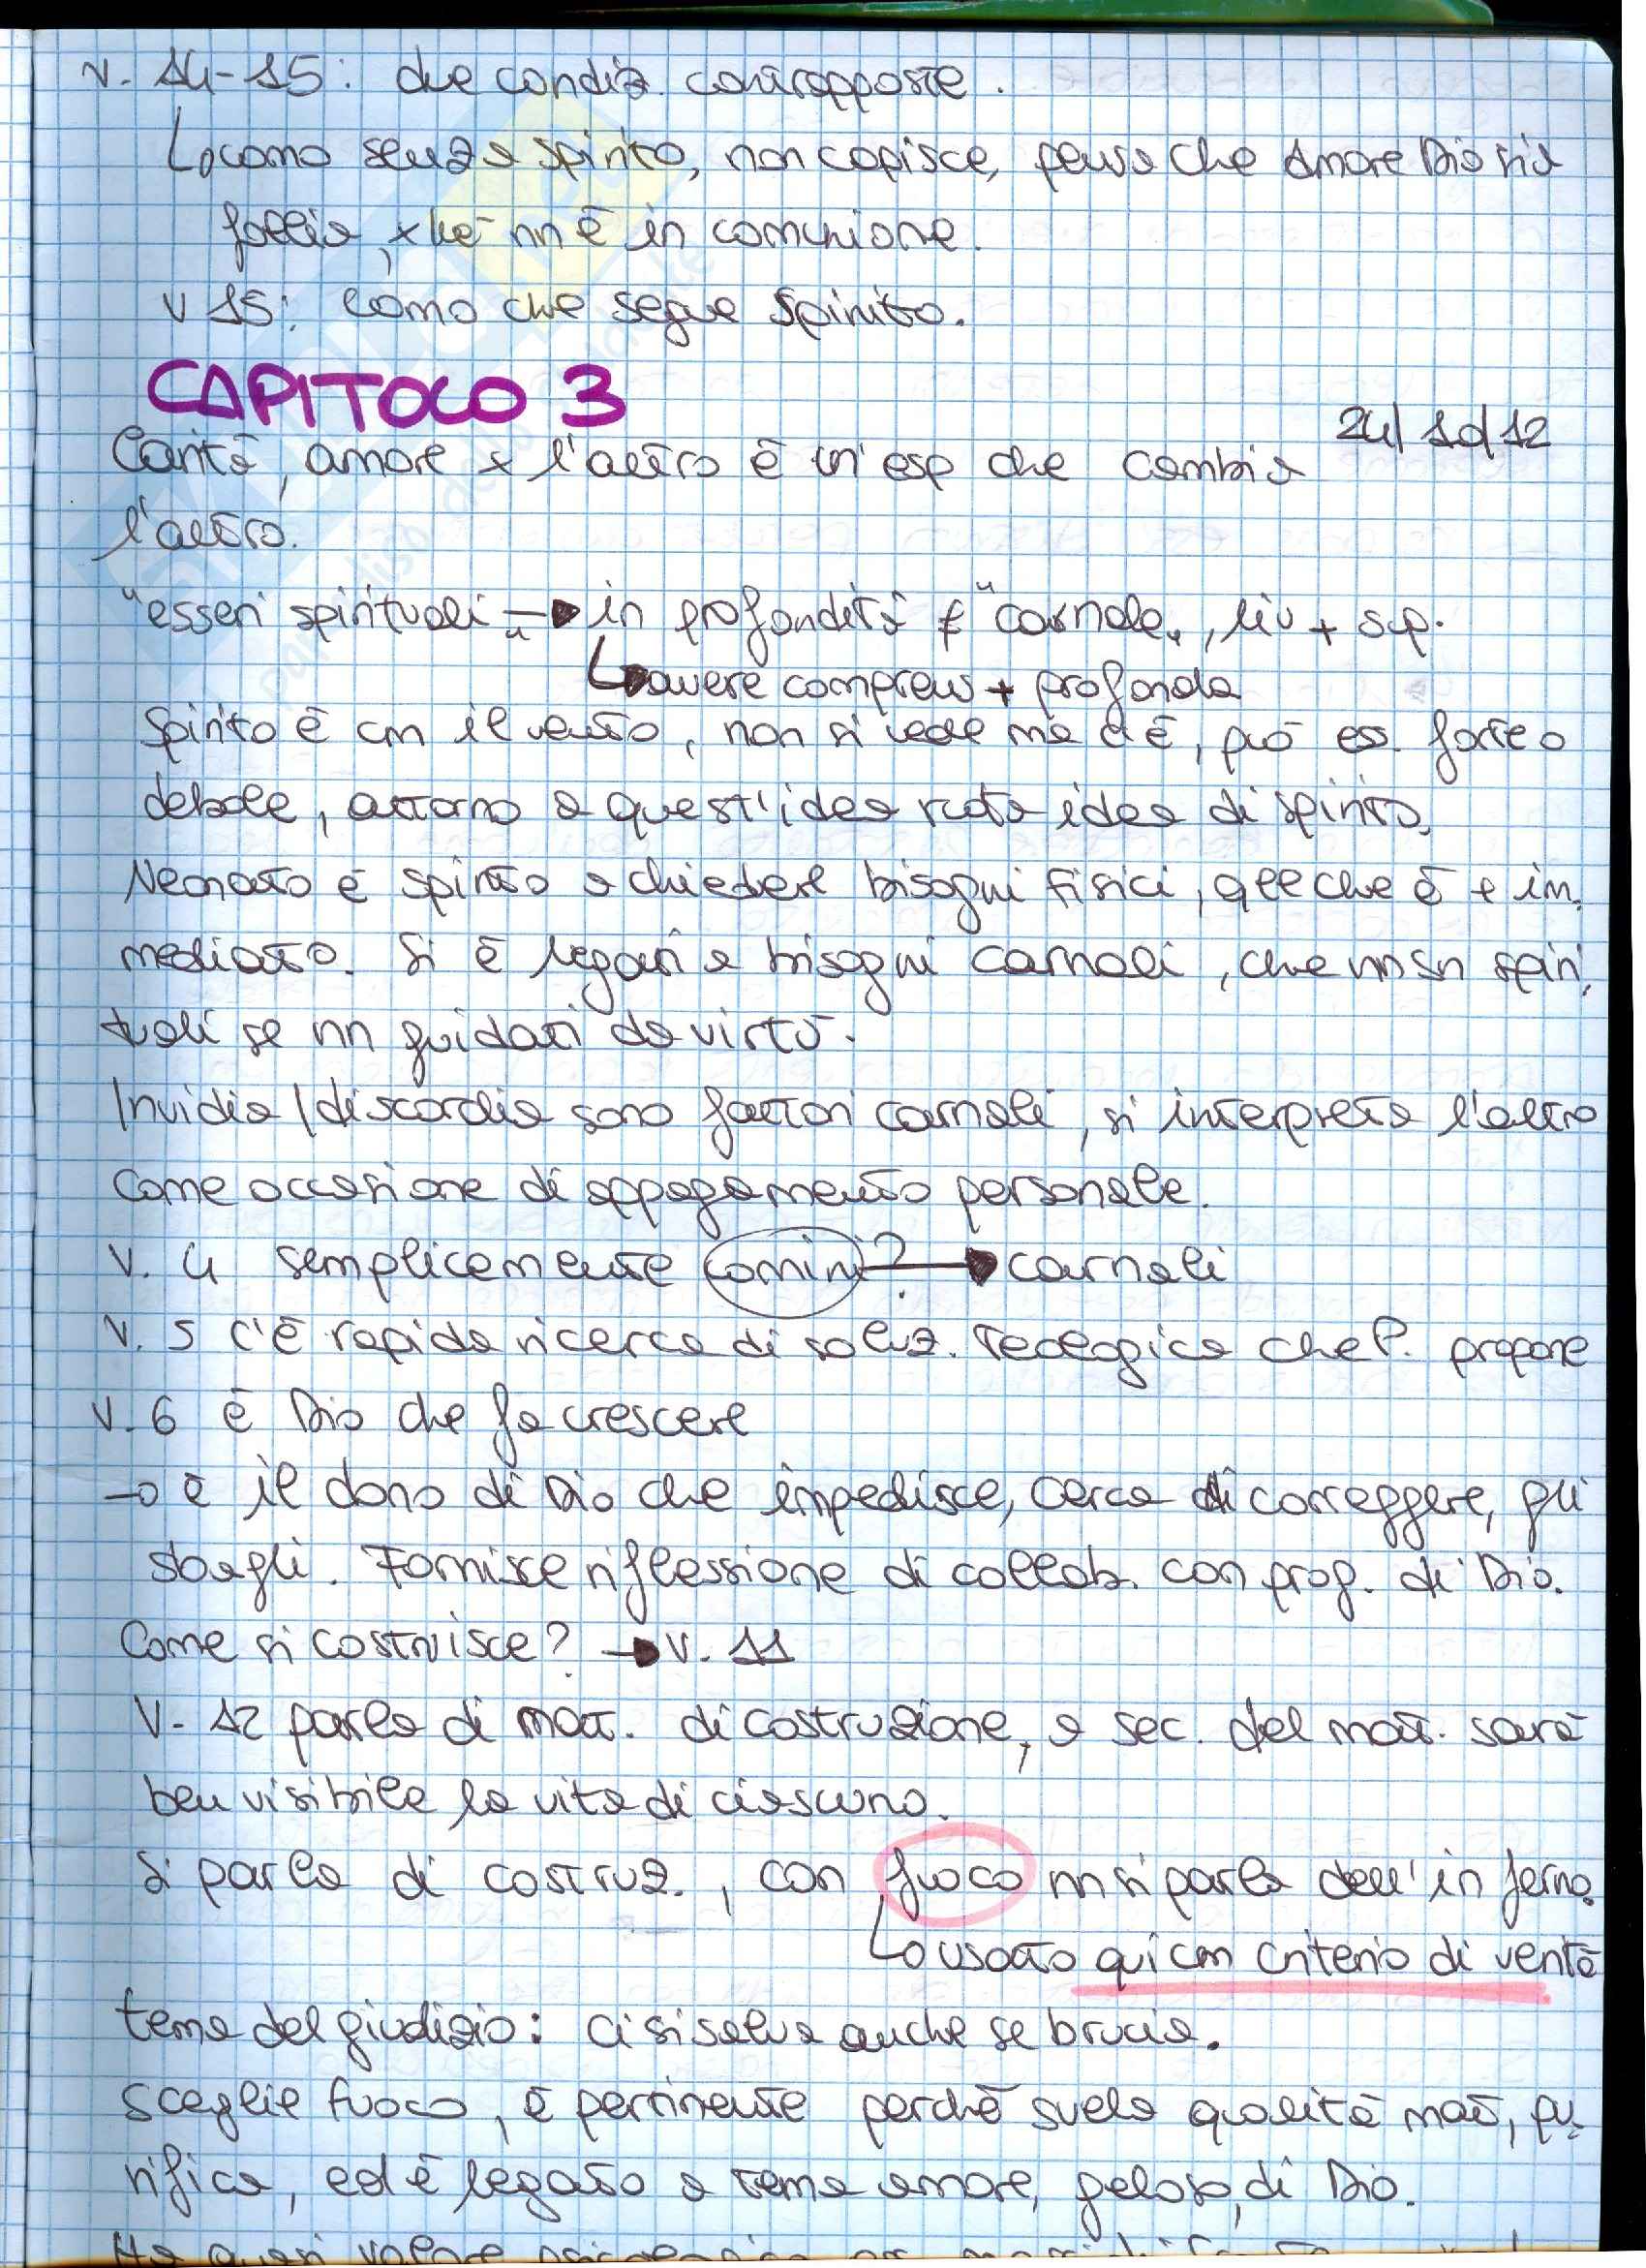 v. 14-15: due condiz. contrapposte.
uomo senza spirito, non capisce, pensa che amore Dio sia
follia, xké nn è in comunione.
v 15: uomo che segue spirito.
CAPITOLO 3
24/10/12
Carità, amore x l'altro è un'esp che cambia
l'altro.
"esseri spirituali" → in profondità ≠ "carnale", liv + sup.
avere comprens + profonda
Spirito è cm il vento, non si vede ma c'è, può ess. forte o
debole, attorno a quest'idea ruota idea di spirito.
Neonato è spinto a chiedere bisogni fisici, qll che è + im.
mediato. Si è legati a bisogni carnali, che nn sn spiri.
tuali se nn guidati da virtù.
Invidia/discordia sono fattori carnali, si interpreta l'altro
come occasione di appagamento personale.
V. 4 semplicemente uomini? → carnali
V. 5 c'è rapida ricerca di soluz. teologica che P. propone
V. 6 è Dio che fa crescere
→ è il dono di Dio che impedisce, cerca di correggere, gli
sbagli. Fornisce riflessione di collab. con prog. di Dio.
Come si costruisce? → v. 11
V. 12 parla di mat. di costruzione, a sec. del mat. sarà
ben visibile la vita di ciascuno.
Si parla di costruz., con fuoco nn si parla dell'inferno.
usato qui cm criterio di verità
tema del giudizio: ci si salva anche se brucia.
Sceglie fuoco, è pertinente perché svela qualità mat, pu.
rifica, ed è legato a tema amore, geloso, di Dio.